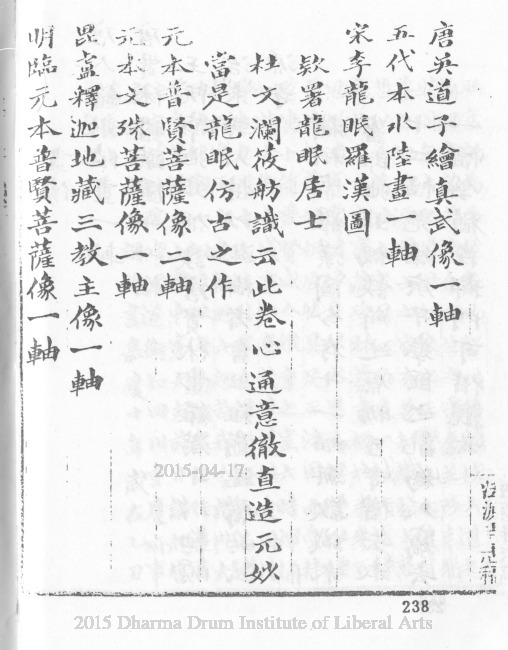 唐吳道子繪真武像一軸
五代本水陸畫一軸
宋李龍眠羅漢圖
欵署龍眠居士
杜文瀾筱舫識云此卷心通意徹直造元妙
當是龍眠仿古之作
元本普賢菩薩像二軸
元本文殊菩薩像一軸
毘盧釋迦地藏三教主像一軸
明臨元本普賢菩薩像一軸
2015-04-17
238
2015 Dharma Drum Institute of Liberal Arts